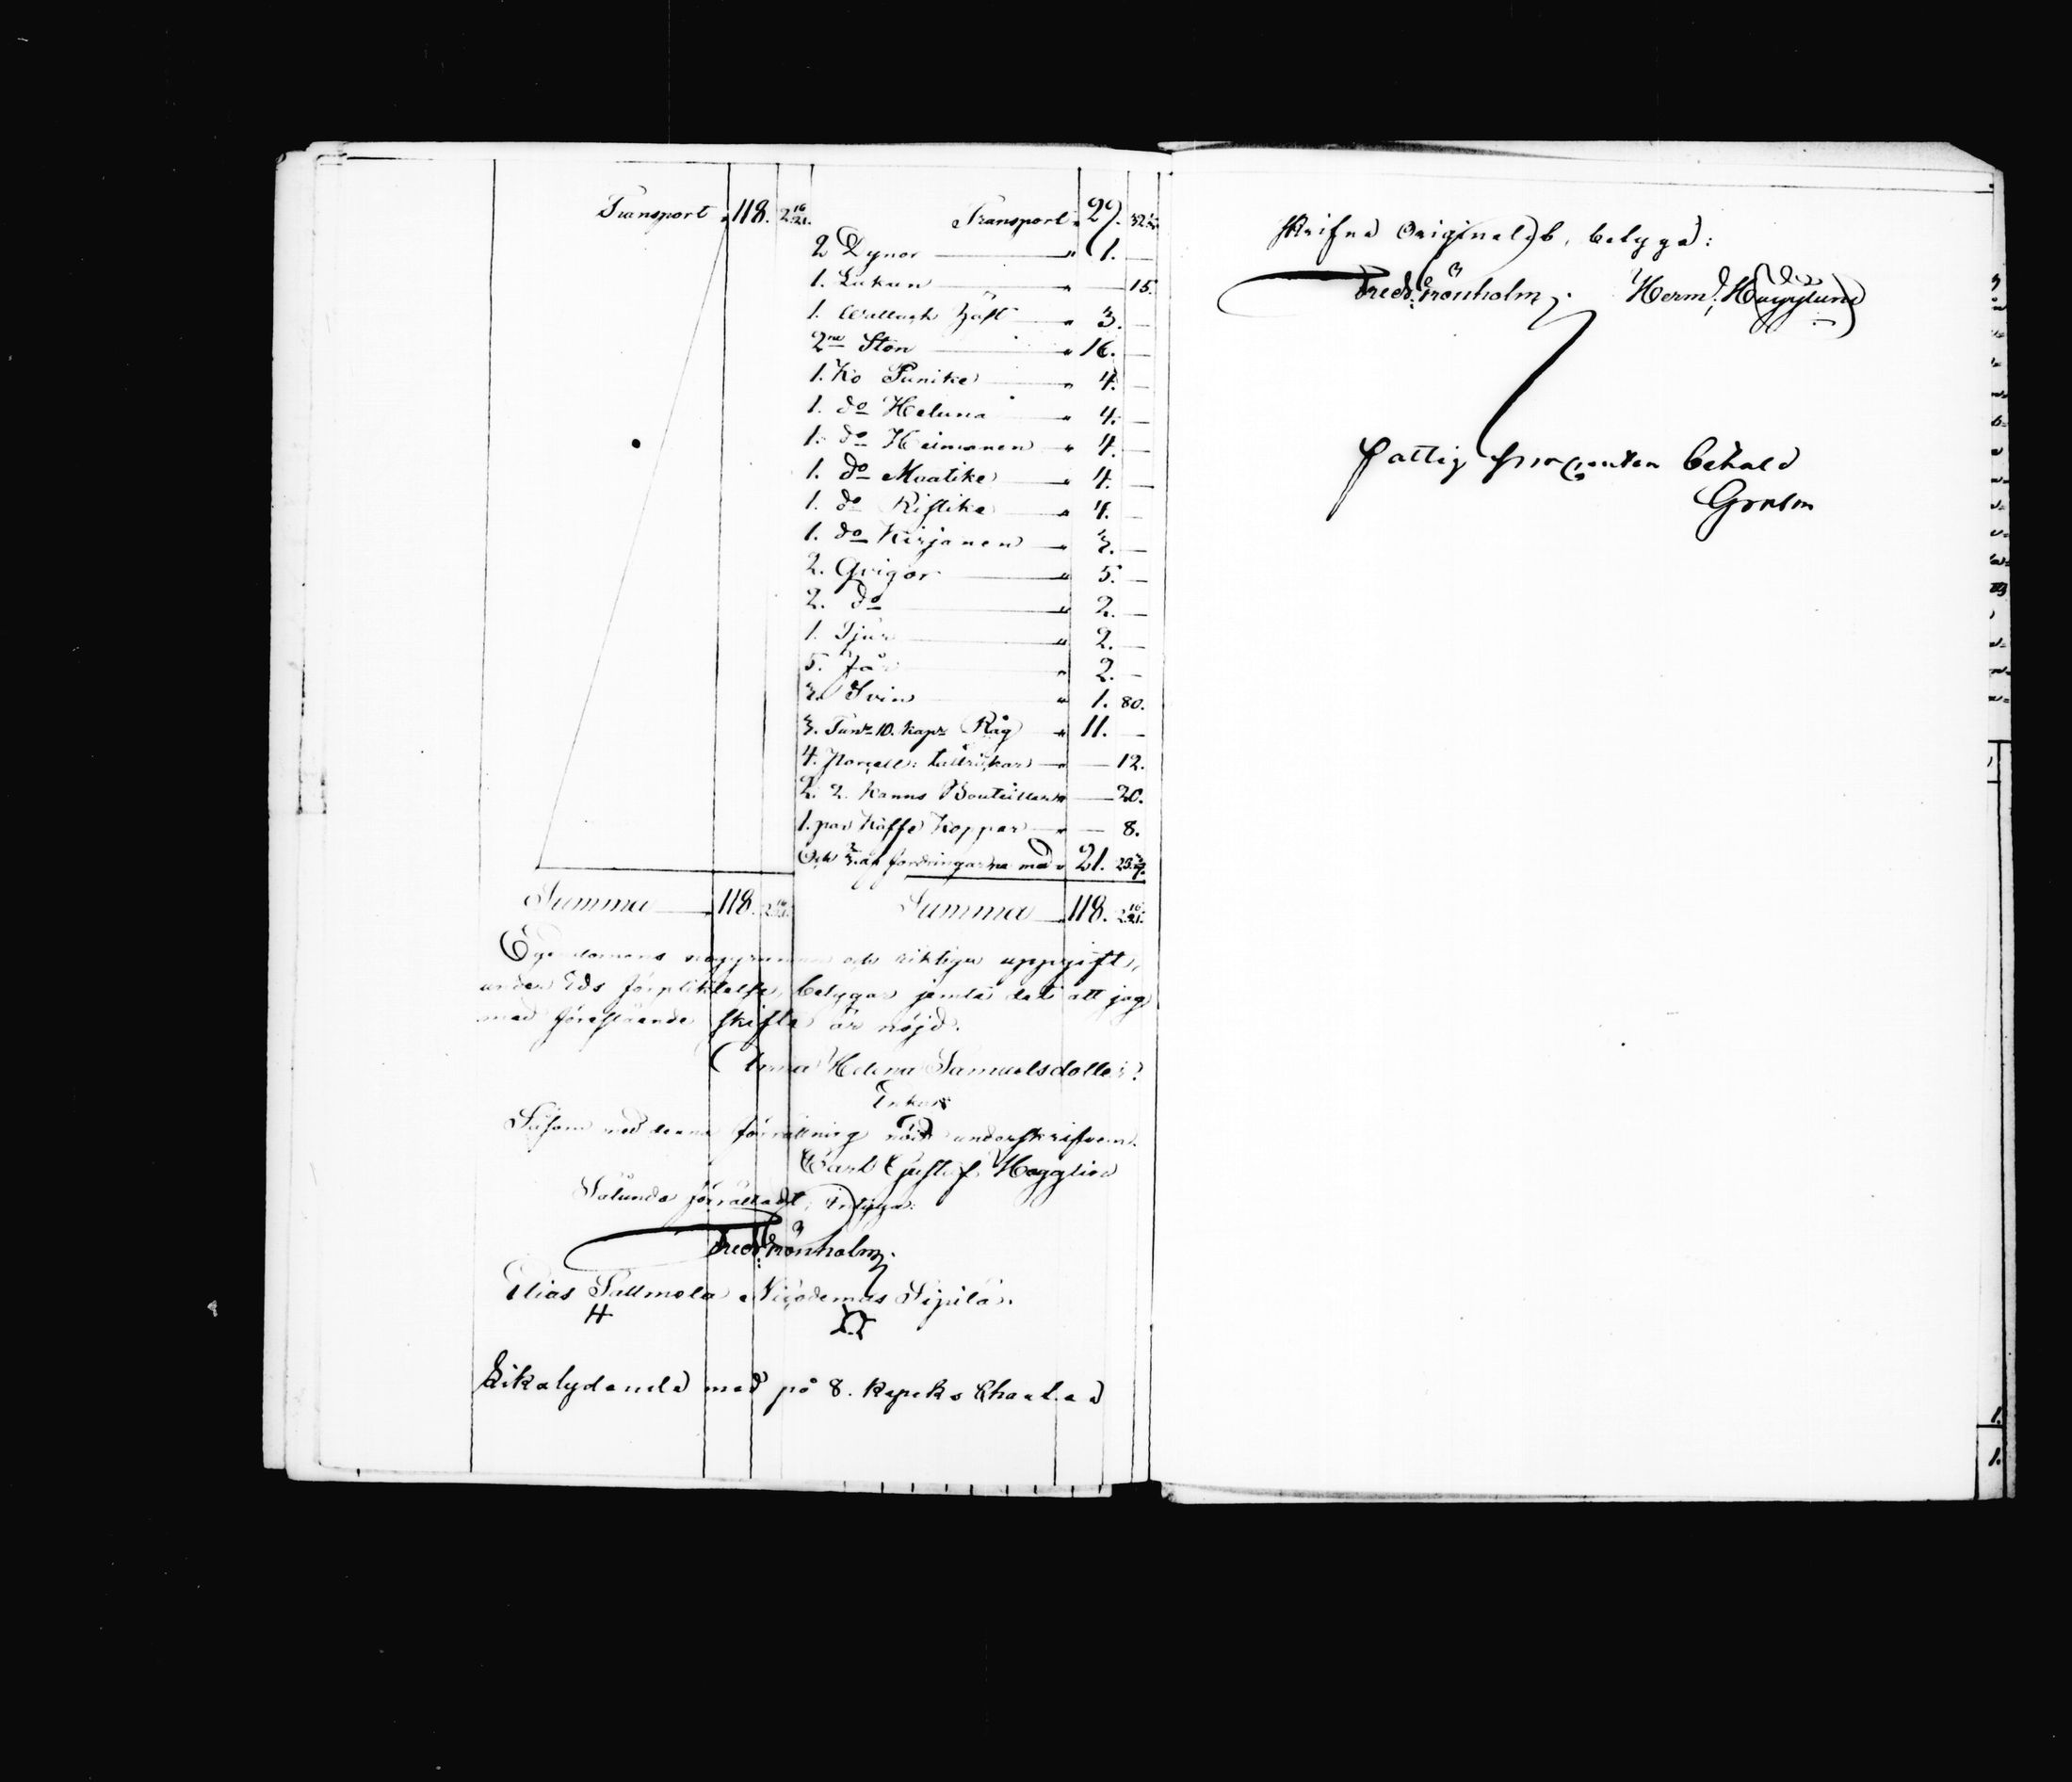 Transport „ 118. 2 16/21.
Transport „ 29. 32
2 Dynor „ 1. —
1. Lakan „ — 15.
1. Wallach häst „ 3. —
2ne Ston „ 16. —
1. Ko Punike „ 4. —
1. do Heluna „ 4. —
1. do Heimonen „ 4. —
1. do Maatike „ 4. —
1. do Riftike „ 4. —
1. do Kirjanen „ 3. —
2. Qvigor „ 5. —
2. do „ 2. —
1. Tjur „ 2. —
5. Får „ 2. —
3. Svin „ 1. 80.
3. Tunr 10. kapr Råg „ 11. —
4. Porcell: tallrikar „ — 12.
2. 2. kanns Bouteiller „ — 20.
1. par Kaffe Koppar „ — 8.
Och 2/3 af fordringarne med „ 21. 23
Summa „ 118. 2 16/21.
Summa „ 118. 2 16/21.
Egendomens noggranna och riktiga uppgift,
under Eds förpliktelse, betygar jemte det att jag
med förestående skifte är nöjd.
Anna Helena Samuelsdotter
Enka
Såsom med denna förrättning nöjd underskrifven.
Carl Gustaf Hägglund
Sålunda förrättadt, intyga:
Fredr Grönholm.
Elias Sallmola Nicodemus Sipilä.
Likalydande med på 8. kopeks Charta
skrifne Originalet, betyga:
Fredr Grönholm. Herm: Hägglund
Fattig procenten betald
Grnlm